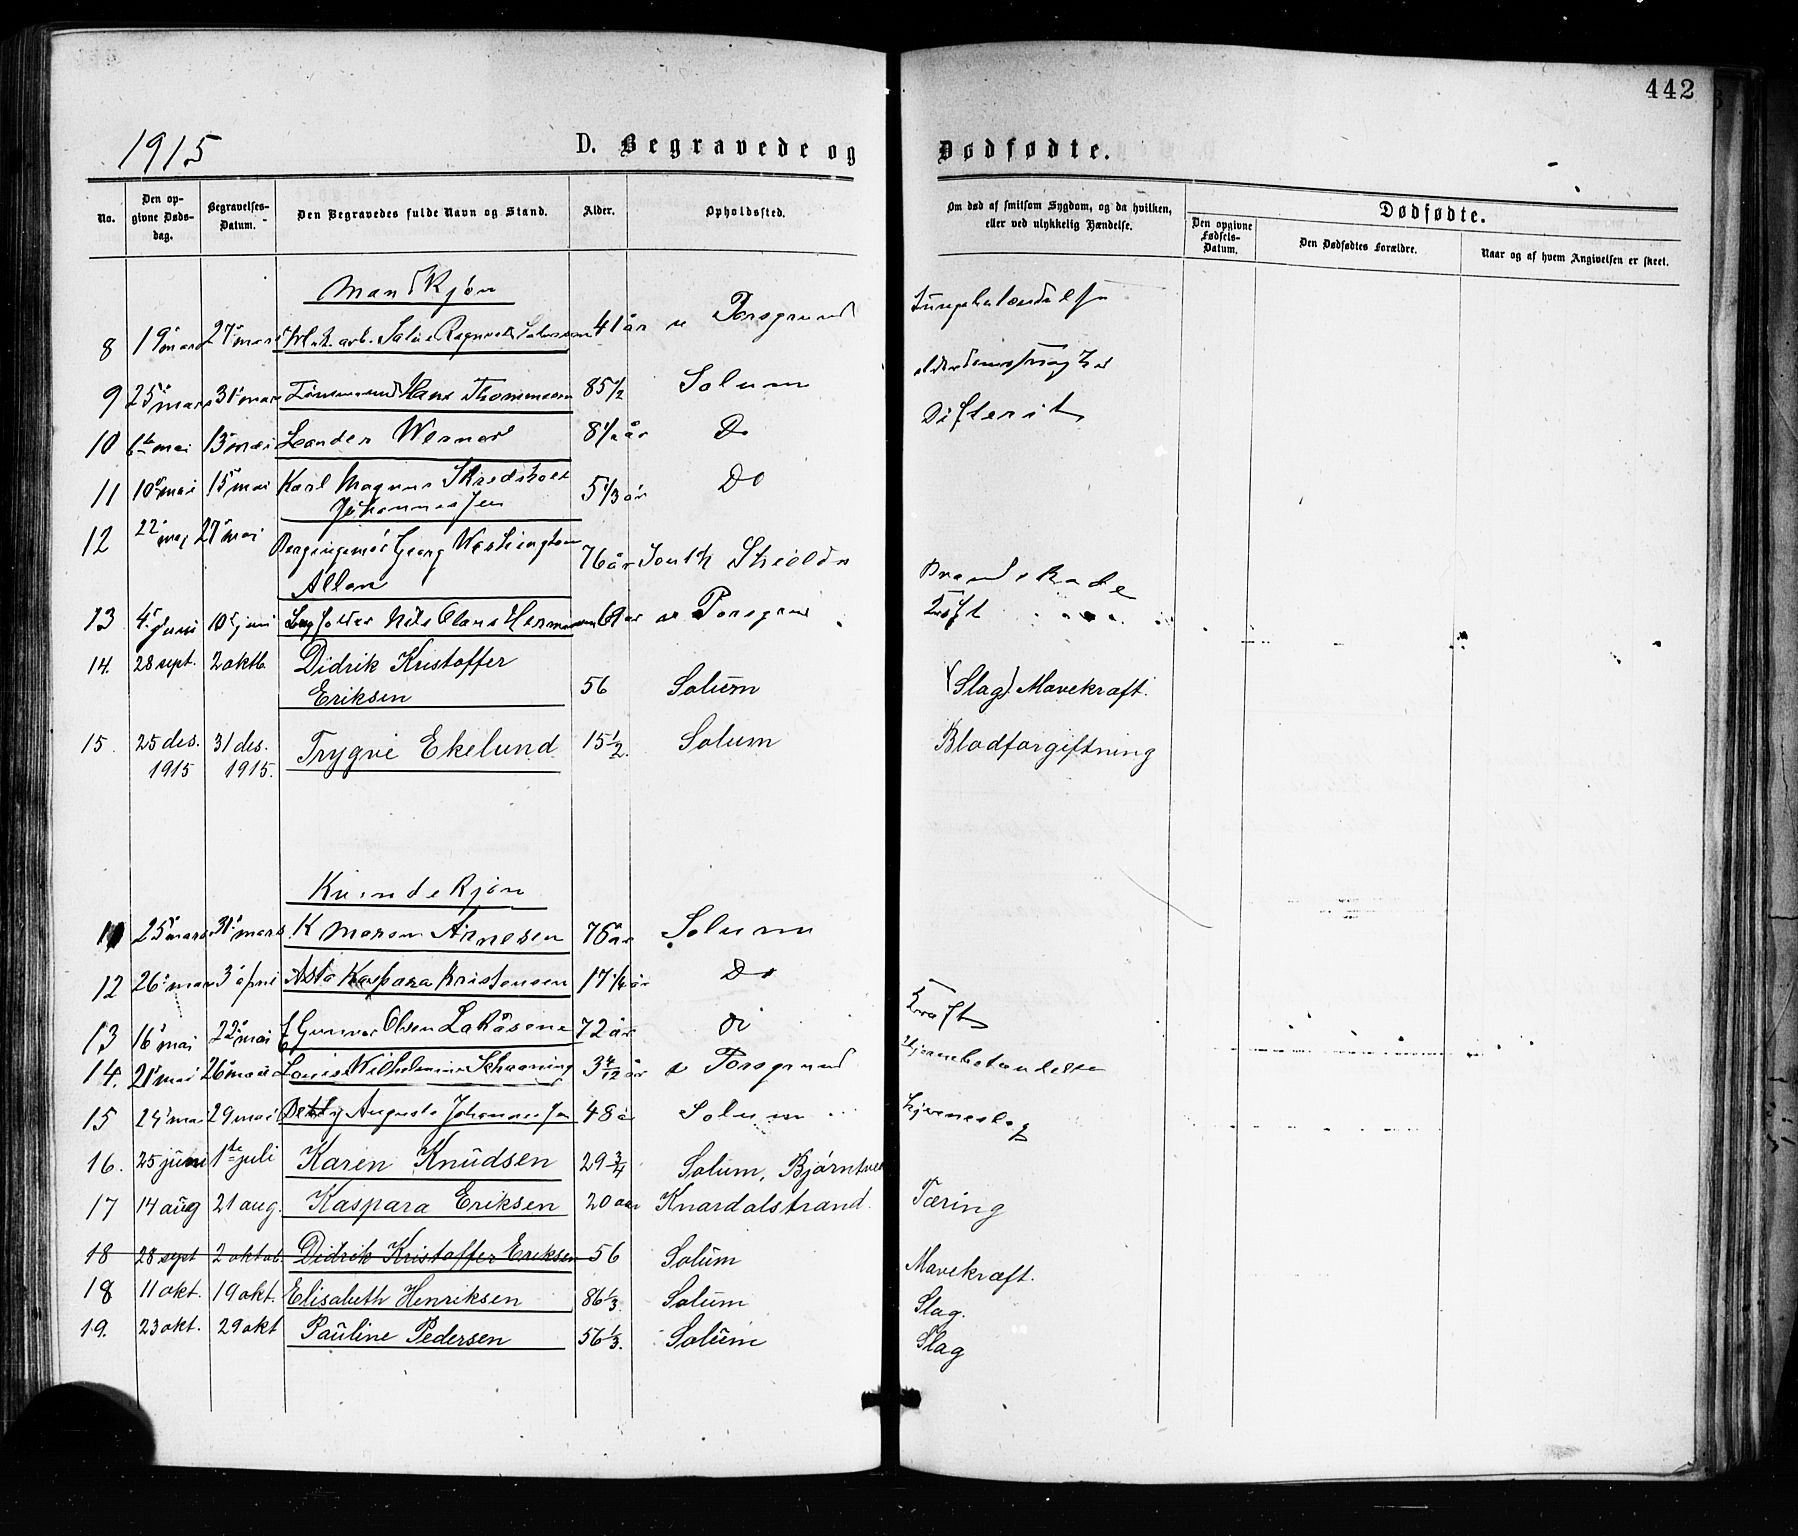 442
1915
D. Begravede og Dødfødte.
No.
Den opgivne Dødsdag.
Begravelses-Datum.
Den Begravedes fulde Navn og Stand.
Alder.
Opholdssted.
Om død af smitsom Sygdom, og da hvilken, eller ved ulykkelig Hændelse.
Dødfødte.
Den opgivne Fødsels-Datum.
Den Dødfødtes Forældre.
Naar og af hvem Angivelsen er skeet.
Mandkjøn
8 19 mars 27 mars arb. 41 år Porsgrund
9 25 mars 31 mars Hans Thommesen 85 1/2 Solum
10 6te mai 13 mai Leander Werner 8 1/2 år Do Difterit
11 10 mai 15 mai Karl Magnus
Johannessen 5 1/3 år Do
12 22 mai 27 mai Georg Washington
Allan 76 år South Shields
13 4 juni 10 juni Nils Olaus 69 år Porsgrund Kræft
14. 28 sept. 2 oktb Didrik Kristoffer
Eriksen 56 Solum (Slag). Mavekræft.
15. 25 des. 1915 31 des. 1915. Trygve Ekelund 15 1/2. Solum Blodforgiftning
Kvindekjøn
11 25 mars 31 mars K Maren Arnesen 76 år Solum
12 26 mars 3 april Asta Kaspara Kristensen 17 1/4 år Do
13 16 mai 22 mai Gunnor Olsen 72 år Do Kræft
14. 21 mai 26 mai Louise Wilhelmine Schaaning 3 4/12 år Porsgrund Hjernebetændelse
15 24 mai 29 mai Augusta Johannessen 48 å Solum Hjerneslag
16. 25 juni 1ste juli Karen Knudsen 29 3/4 Solum, Bjørntvet
17 14 aug 21 aug. Kaspara Eriksen 20 aar Knardalstrand. Tæring
18 28 sept 2 oktob. Didrik Kristoffer Eriksen 56 Solum Mavekræft.
18 11 okt. 19 okt. Elisabeth Henriksen 86 1/3. Solum Slag.
19. 23 okt. 29 okt Pauline Pedersen 56 1/3. Solum Slag